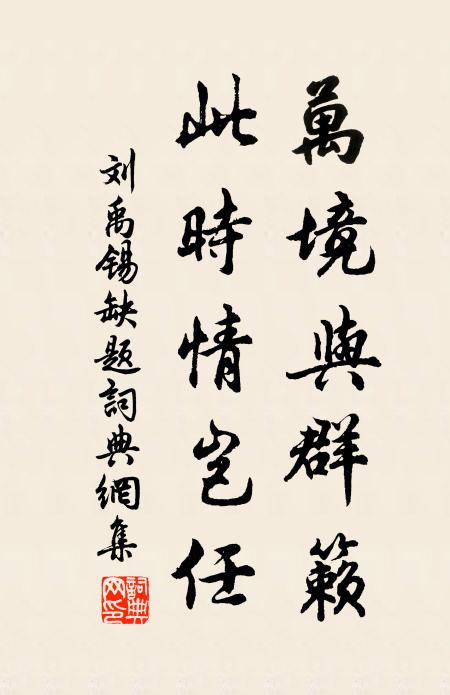 萬境與群籟
此時情岂任
刘禹锡缺题詞典網集
詞典网印